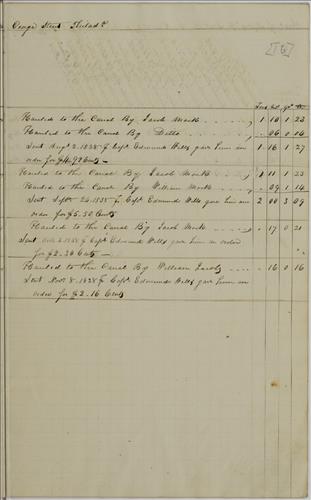 George Street Philada
[16]
Tons Cwt qr lbs
Hauled to the Canal By Jacob Mock 1 10 1 23
Hauled to the Canal By Ditto .. 06 0 16
Sent Augt 2. 1838 p Capt Edmund Wills gave him an 1 16 1 27
order for $4.92 Cents
Hauled to the Canal By Jacob Mock 1 11 1 23
Hauled to the Canal By William Mock .. 09 1 14
Sent Septr 24 1838 p Capt Edmund Wills gave him an 2 00 3 09
order for $5.50 Cents
Hauled to the Canal By Jacob Mock .. 17 0 21
Sent 1838 p Capt Edmund Wills gave him an order
for $2.30 Cents
Hauled to the Canal By William Jacoby .. 16 0 16
Sent Novr 8. 1838 p Capt Edmund Wills gave him an
order for $2.16 Cents